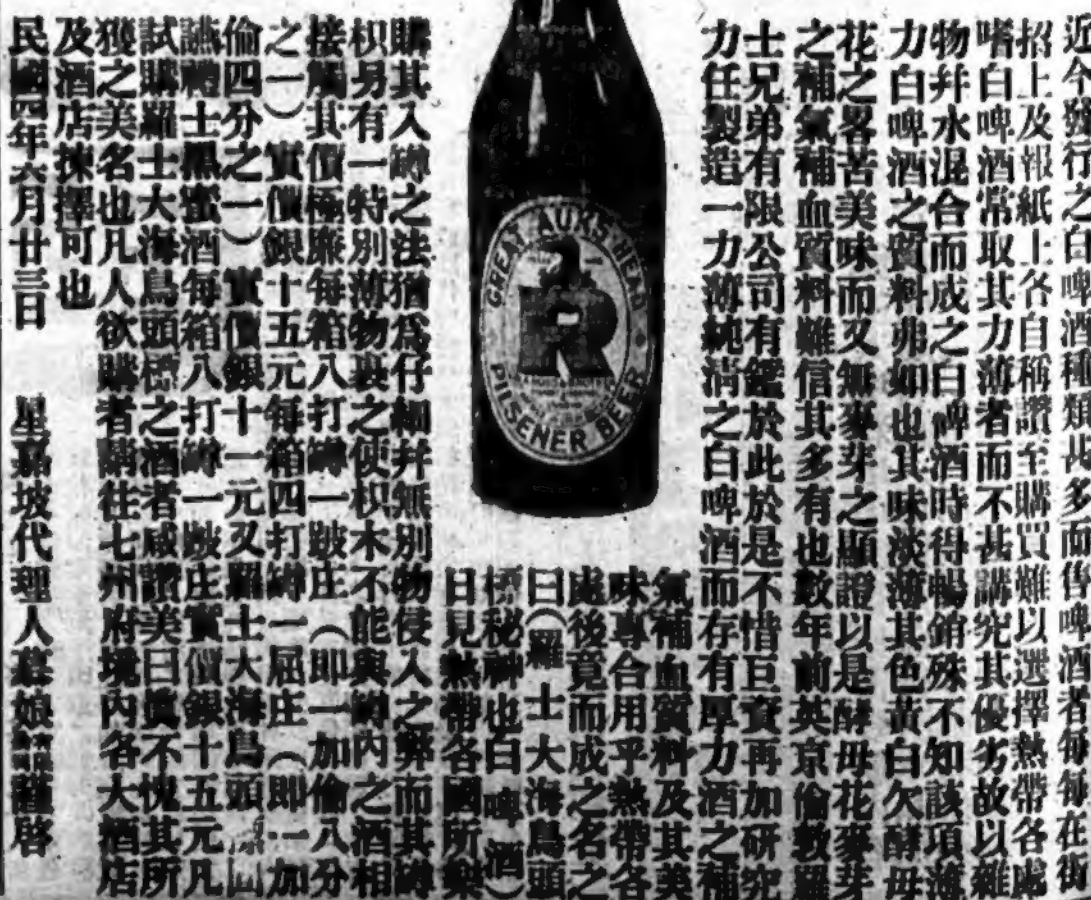 近今發行之白啤酒種類此多而售啤酒者每每在街
招上及報紙上各自稱讚至購買難以選擇熱帶各處
嗜白啤酒常取其力薄者而不甚講究其優劣故以雜
物幷水混合而成之白啤酒時得暢銷殊不知該項薄
力白啤酒之質料弗如也其味淡薄其色黃白欠酵母
花之畧苦美味而又無麥芽之顯證以是酵母花麥芽
之補氣補血質料難信其多有也數年前英京倫敦羅
士兄弟有限公司有鑑於此於是不惜巨資再加研究
力任製造一力薄純淸之白啤酒而存有厚力酒之補
氣補血質料及其美
味專合用乎熱帶各
處後竟而成之名之
曰(羅士大海鳥頭
標秘神也白啤酒)
日見熱帶各國所樂
GREAT AUK'S HEAD
R
PILSENER BEER
購其入罇之法猶爲仔細幷無別物侵人之弊而其罇
枳身有一特別薄物裹之使枳木不能與罇內之酒相
接觸其價極廉每箱八打罇一跛庄(即一加倫八分
之一)實價銀十五元每箱四打罇一屈庄(即一加
倫四分之一)實價銀十一元又羅士大海鳥頭標
讌禮士黑蜜酒每箱八打罇一跛庄實價銀十五元凡
試購羅士大海鳥頭標之酒者咸讚美曰眞不愧其所
獲之美名也凡人欲購者請往七州府境內各大酒店
及酒店揀擇可也
民國四年六月廿三日
星嘉坡代理人 娘 謹啓